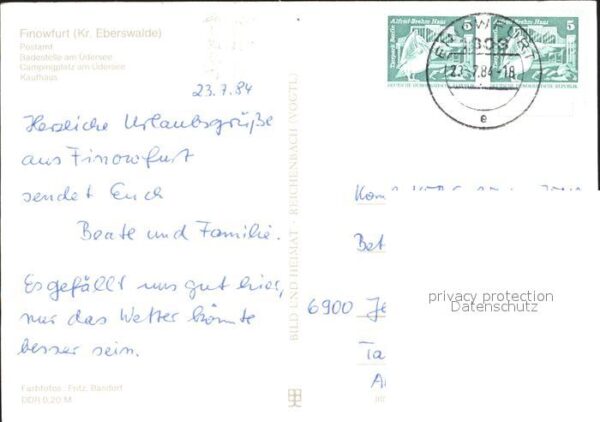 Finowfurt (Kr. Eberswalde)
Postamt
Badestelle am Üdersee
Campingplatz am Üdersee
Kaufhaus
23.7.84
Herzliche Urlaubsgrüße
aus Finowfurt
sendet Euch
Beate und Familie.
Es gefällt uns gut hier,
nur das Wetter könnte
besser sein.
Farbfotos: Fritz, Bandorf
DDR 0,20 M
BILD UND HEIMAT · REICHENBACH (VOGTL)
Tierpark Berlin Alfred-Brehm-Haus 5
Alfred-Brehm-Haus 5
FINOWFURT
23.7.84-18
e
Kom
Bet
6900 Je
Ta
privacy protection
Datenschutz